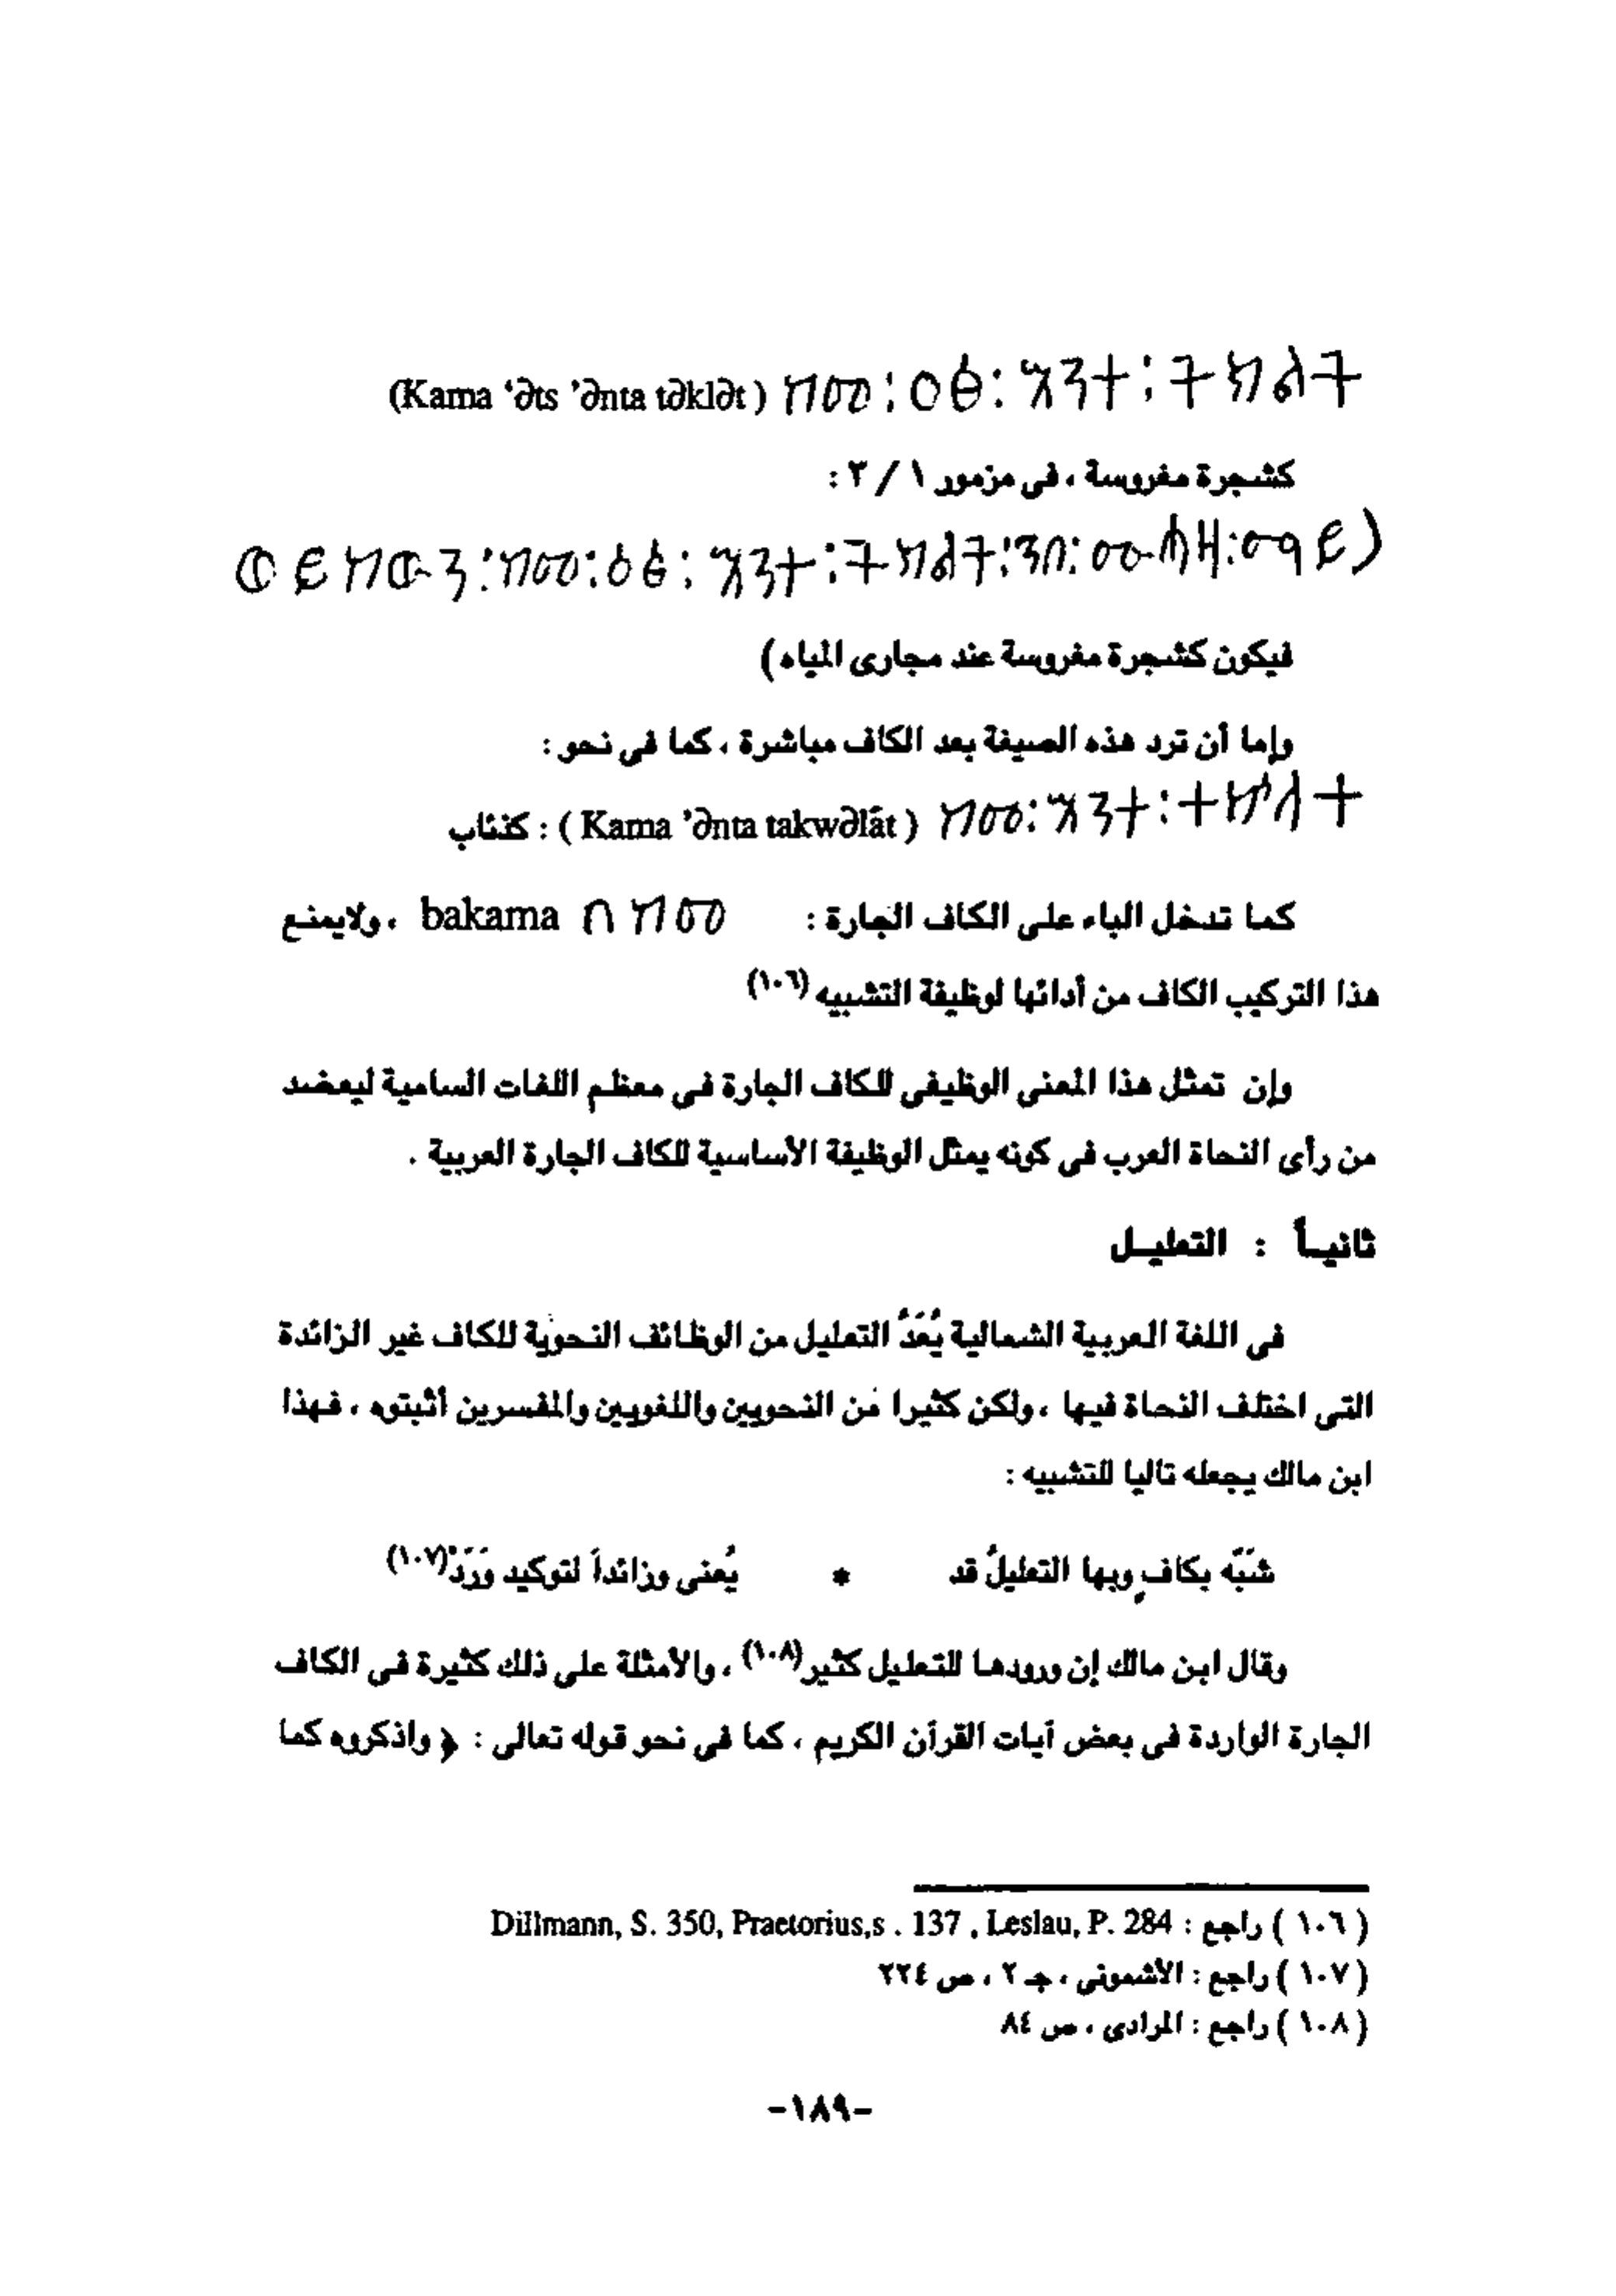 (Kama ‘ǝts ’ǝnta tǝklǝt ) ከመ፡ዐፅ፡እንተ፡ትክልት
كشجرة مغروسة ، فى مزمور ١ / ٣ :
ወይከውን፡ከመ፡ዕፅ፡እንተ፡ትክልት፡ኀበ፡ሙሓዘ፡ማይ)
فيكون كشجرة مغروسة عند مجارى المياه)
وإما أن ترد هذه الصيغة بعد الكاف مباشرة ، كما فى نحو :
ከመ፡እንተ፡ተኵላት ( Kama ’ǝnta takwǝlāt ) : كذئاب
كما تدخل الباء على الكاف الجارة : በከመ bakama ، ولايمنع
هذا التركيب الكاف من أدائها لوظيفة التشبيه (١٠٦)
وإن تمثل هذا المعنى الوظيفى للكاف الجارة فى معظم اللغات السامية ليعضد
من رأى النحاة العرب فى كونه يمثل الوظيفة الأساسية للكاف الجارة العربية .
ثانيـاً : التعليـل
فى اللغة العربية الشمالية يُعَدُّ التعليل من الوظائف النحوية للكاف غير الزائدة
التى اختلف النحاة فيها ، ولكن كثيرا من النحويين واللغويين والمفسرين أثبتوه ، فهذا
ابن مالك يجعله تاليا للتشبيه :
شبّه بكافٍ وبها التعليلُ قد * يُعنى وزائداً لتوكيد وَرَدْ(١٠٧)
وقال ابن مالك إن ورودها للتعليل كثير(١٠٨) ، والأمثلة على ذلك كثيرة فى الكاف
الجارة الواردة فى بعض آيات القرآن الكريم ، كما فى نحو قوله تعالى : ﴿ واذكروه كما
( ١٠٦ ) راجع : Dillmann, S. 350, Praetorius,s . 137 , Leslau, P. 284
( ١٠٧ ) راجع : الأشمونى ، جـ ٢ ، ص ٢٢٤
( ١٠٨ ) راجع : المرادى ، ص ٨٤
-١٨٩-